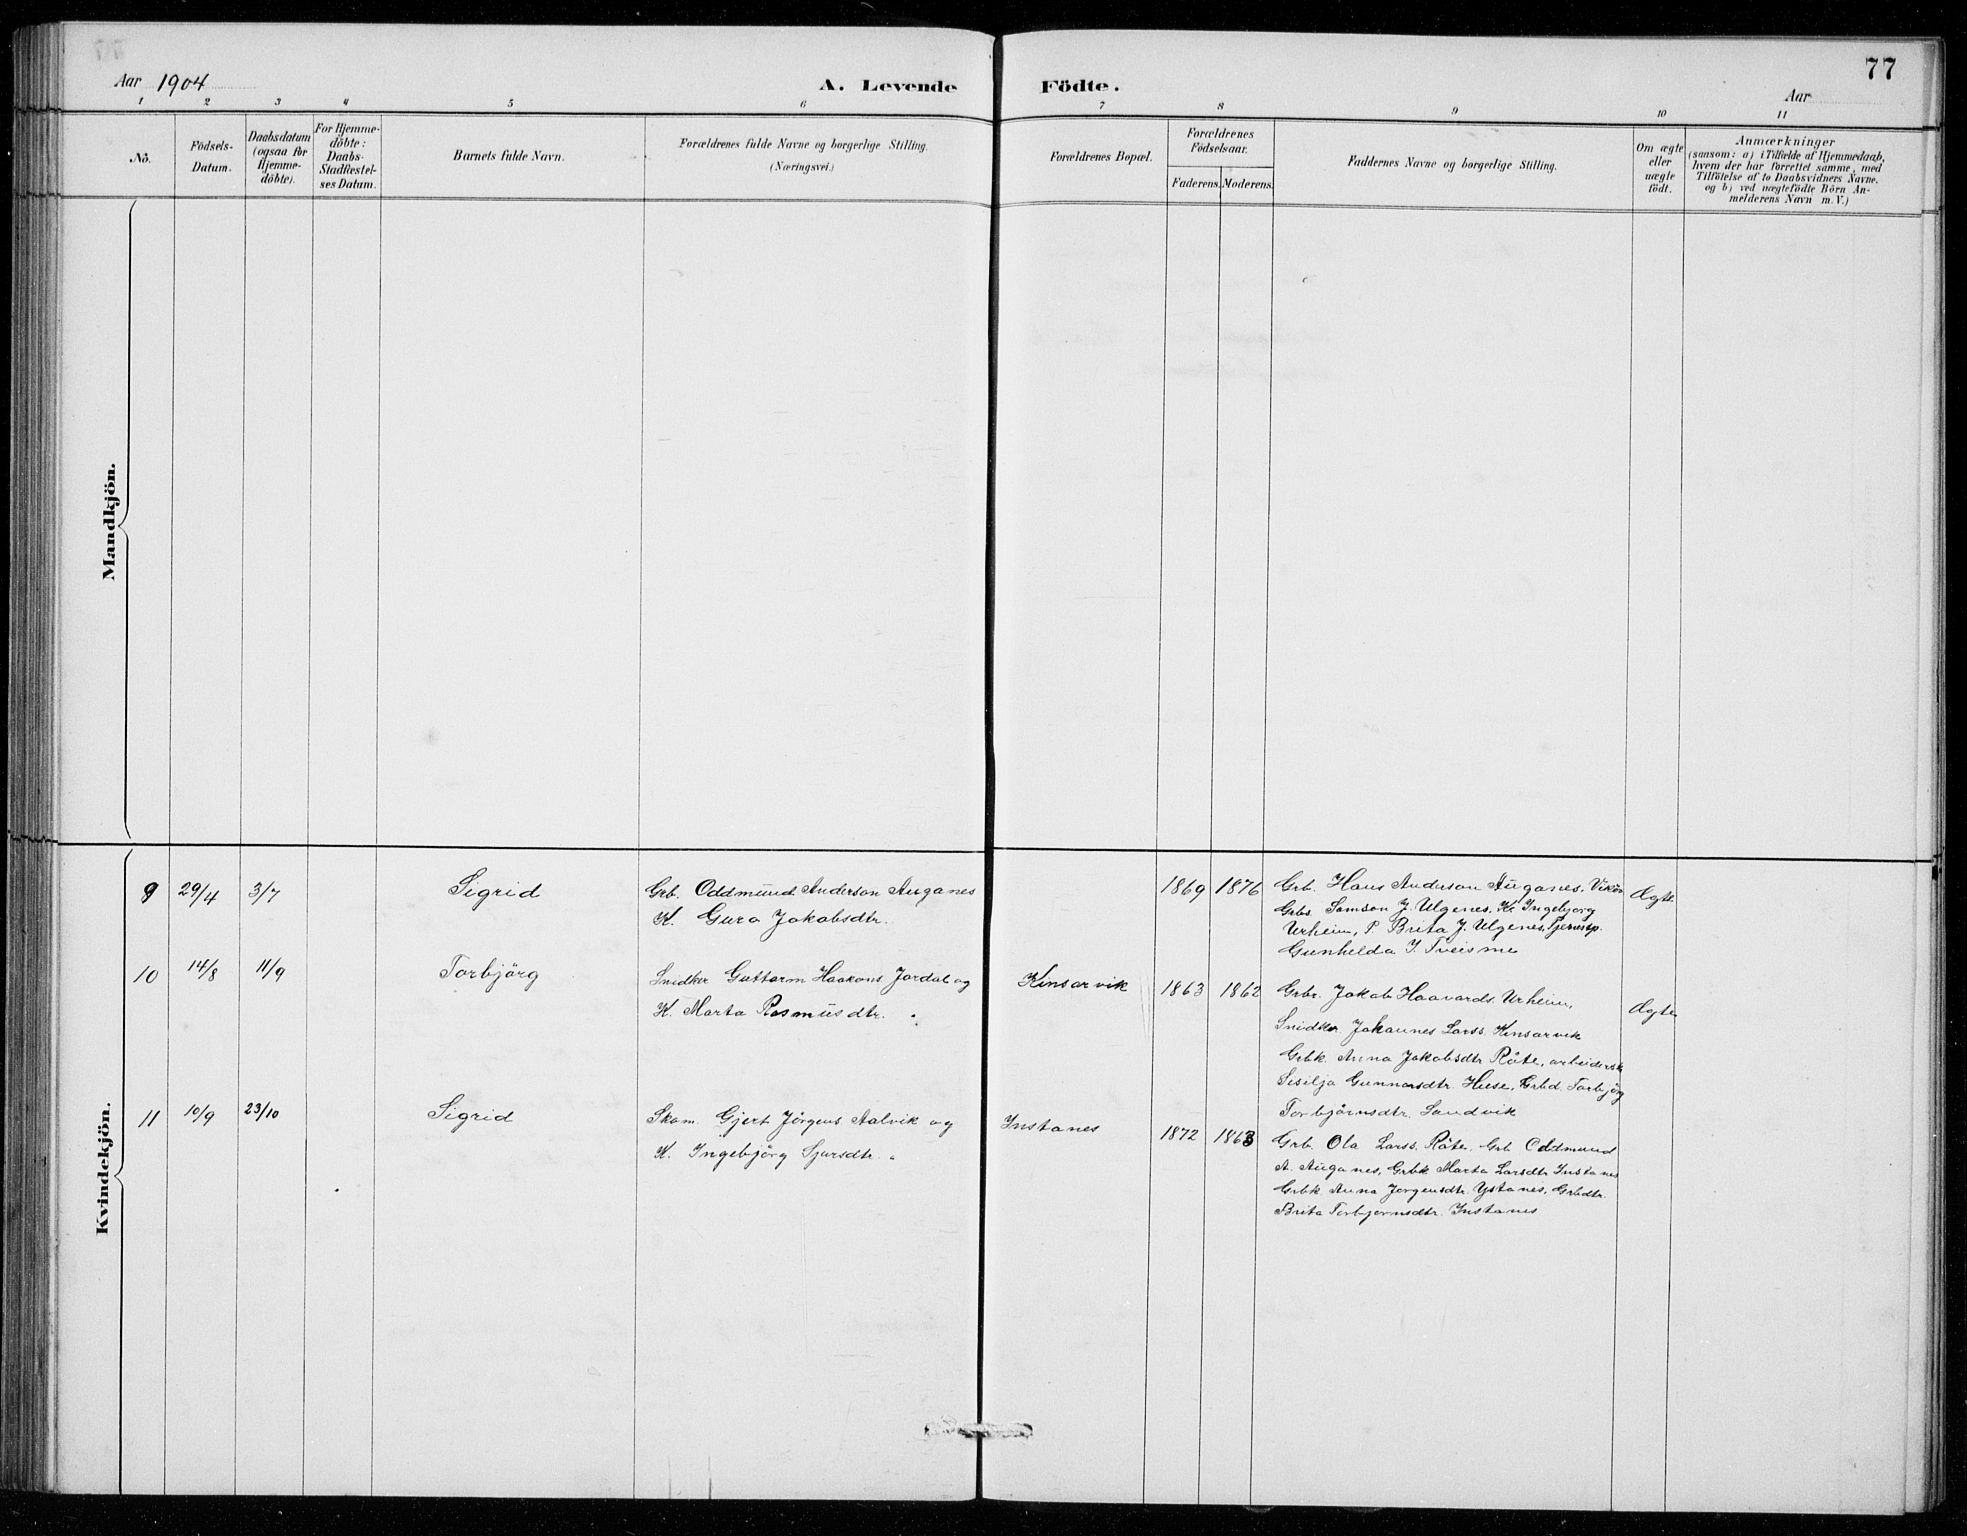 Aar 1904
A. Levende Födte.
77
Aar
1 2 3 4 5 6 7 8 9 10 11
No.
Födsels-
Datum.
Daabsdatum
(ogsaa for
Hjemme-
döbte).
For Hjemme-
döbte:
Daabs-
Stadfæstel-
ses Datum.
Barnets fulde Navn.
Forældrenes fulde Navne og borgerlige Stilling.
(Næringsvei.)
Forældrenes Bopæl.
Forældrenes
Födselsaar.
Faderens. Moderens.
Faddernes Navne og borgerlige Stilling.
Om ægte
eller
uægte
födt.
Anmærkninger
(saasom: a) i Tilfælde af Hjemmedaab,
hvem der har forrettet samme, med
Tilföielse af to Daabsvidners Navne,
og b) ved uægtefödte Börn An-
melderens Navn m. V.)
Mandkjön.
Kvindekjön.
9 29/4 3/7 Sigrid
Grb. Oddmund Anderson Auganes
K. Guro Jakobsdtr.
1869 1876
Grb. Hans Anderson Auganes, Vikör
Grbs. Samson J. Ulgenes, K. Ingebjorg
Urheim, P. Brita J. Ulgenes, Tjenestp.
Gunhelda J. Tveisme
Ægte
10 14/8 11/9 Torbjörg
Snidker Guttorm Haakons. Jordal og
K. Marta Rasmusdtr.
Kinsarvik
1863 1862
Grbr. Jakob Haavards. Urheim,
Snidker Johannes Larss. Kinsarvik
Grbk. Anna Jakobsdtr Råte, arbeidersk
Sesilja Gunnarsdtr. Huse, Grbd. Torbjörg
Torbjörnsdtr. Sandvik
Ægte
11 10/9 23/10 Sigrid
Skom. Gjert Jörgens Aalvik og
K. Ingebjörg Sjursdtr.
Instanes
1872 1863
Grb. Ola Larss. Råte, Grb Oddmund
A. Auganes, Grbk Marta Larsdtr Instanes
Grbk. Anna Jorgensdtr. Ystanes, Grbdtr.
Brita Torbjornsdtr. Instanes